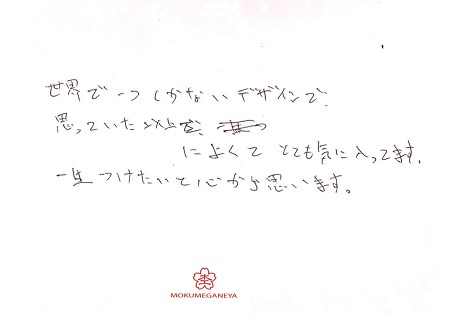 世界で一つしかないデザインで、
思っていた以上
によくて とても気に入ってます。
一生つけたいと心から思います。
MOKUMEGANEYA